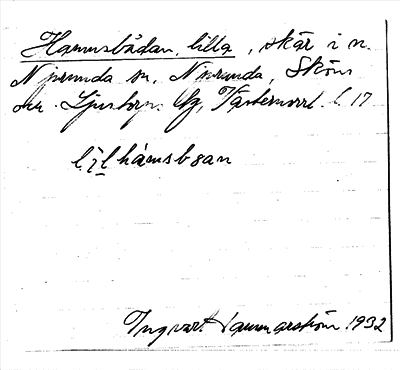 Hamnsbådan, lilla, skär i n.
Njurunda sn, Njurunda, Sköns
o. Ljustorps tg, Västernorrl. l. 17
l.i̱l hàmsbɷan
Ingvart Hammarström 1932